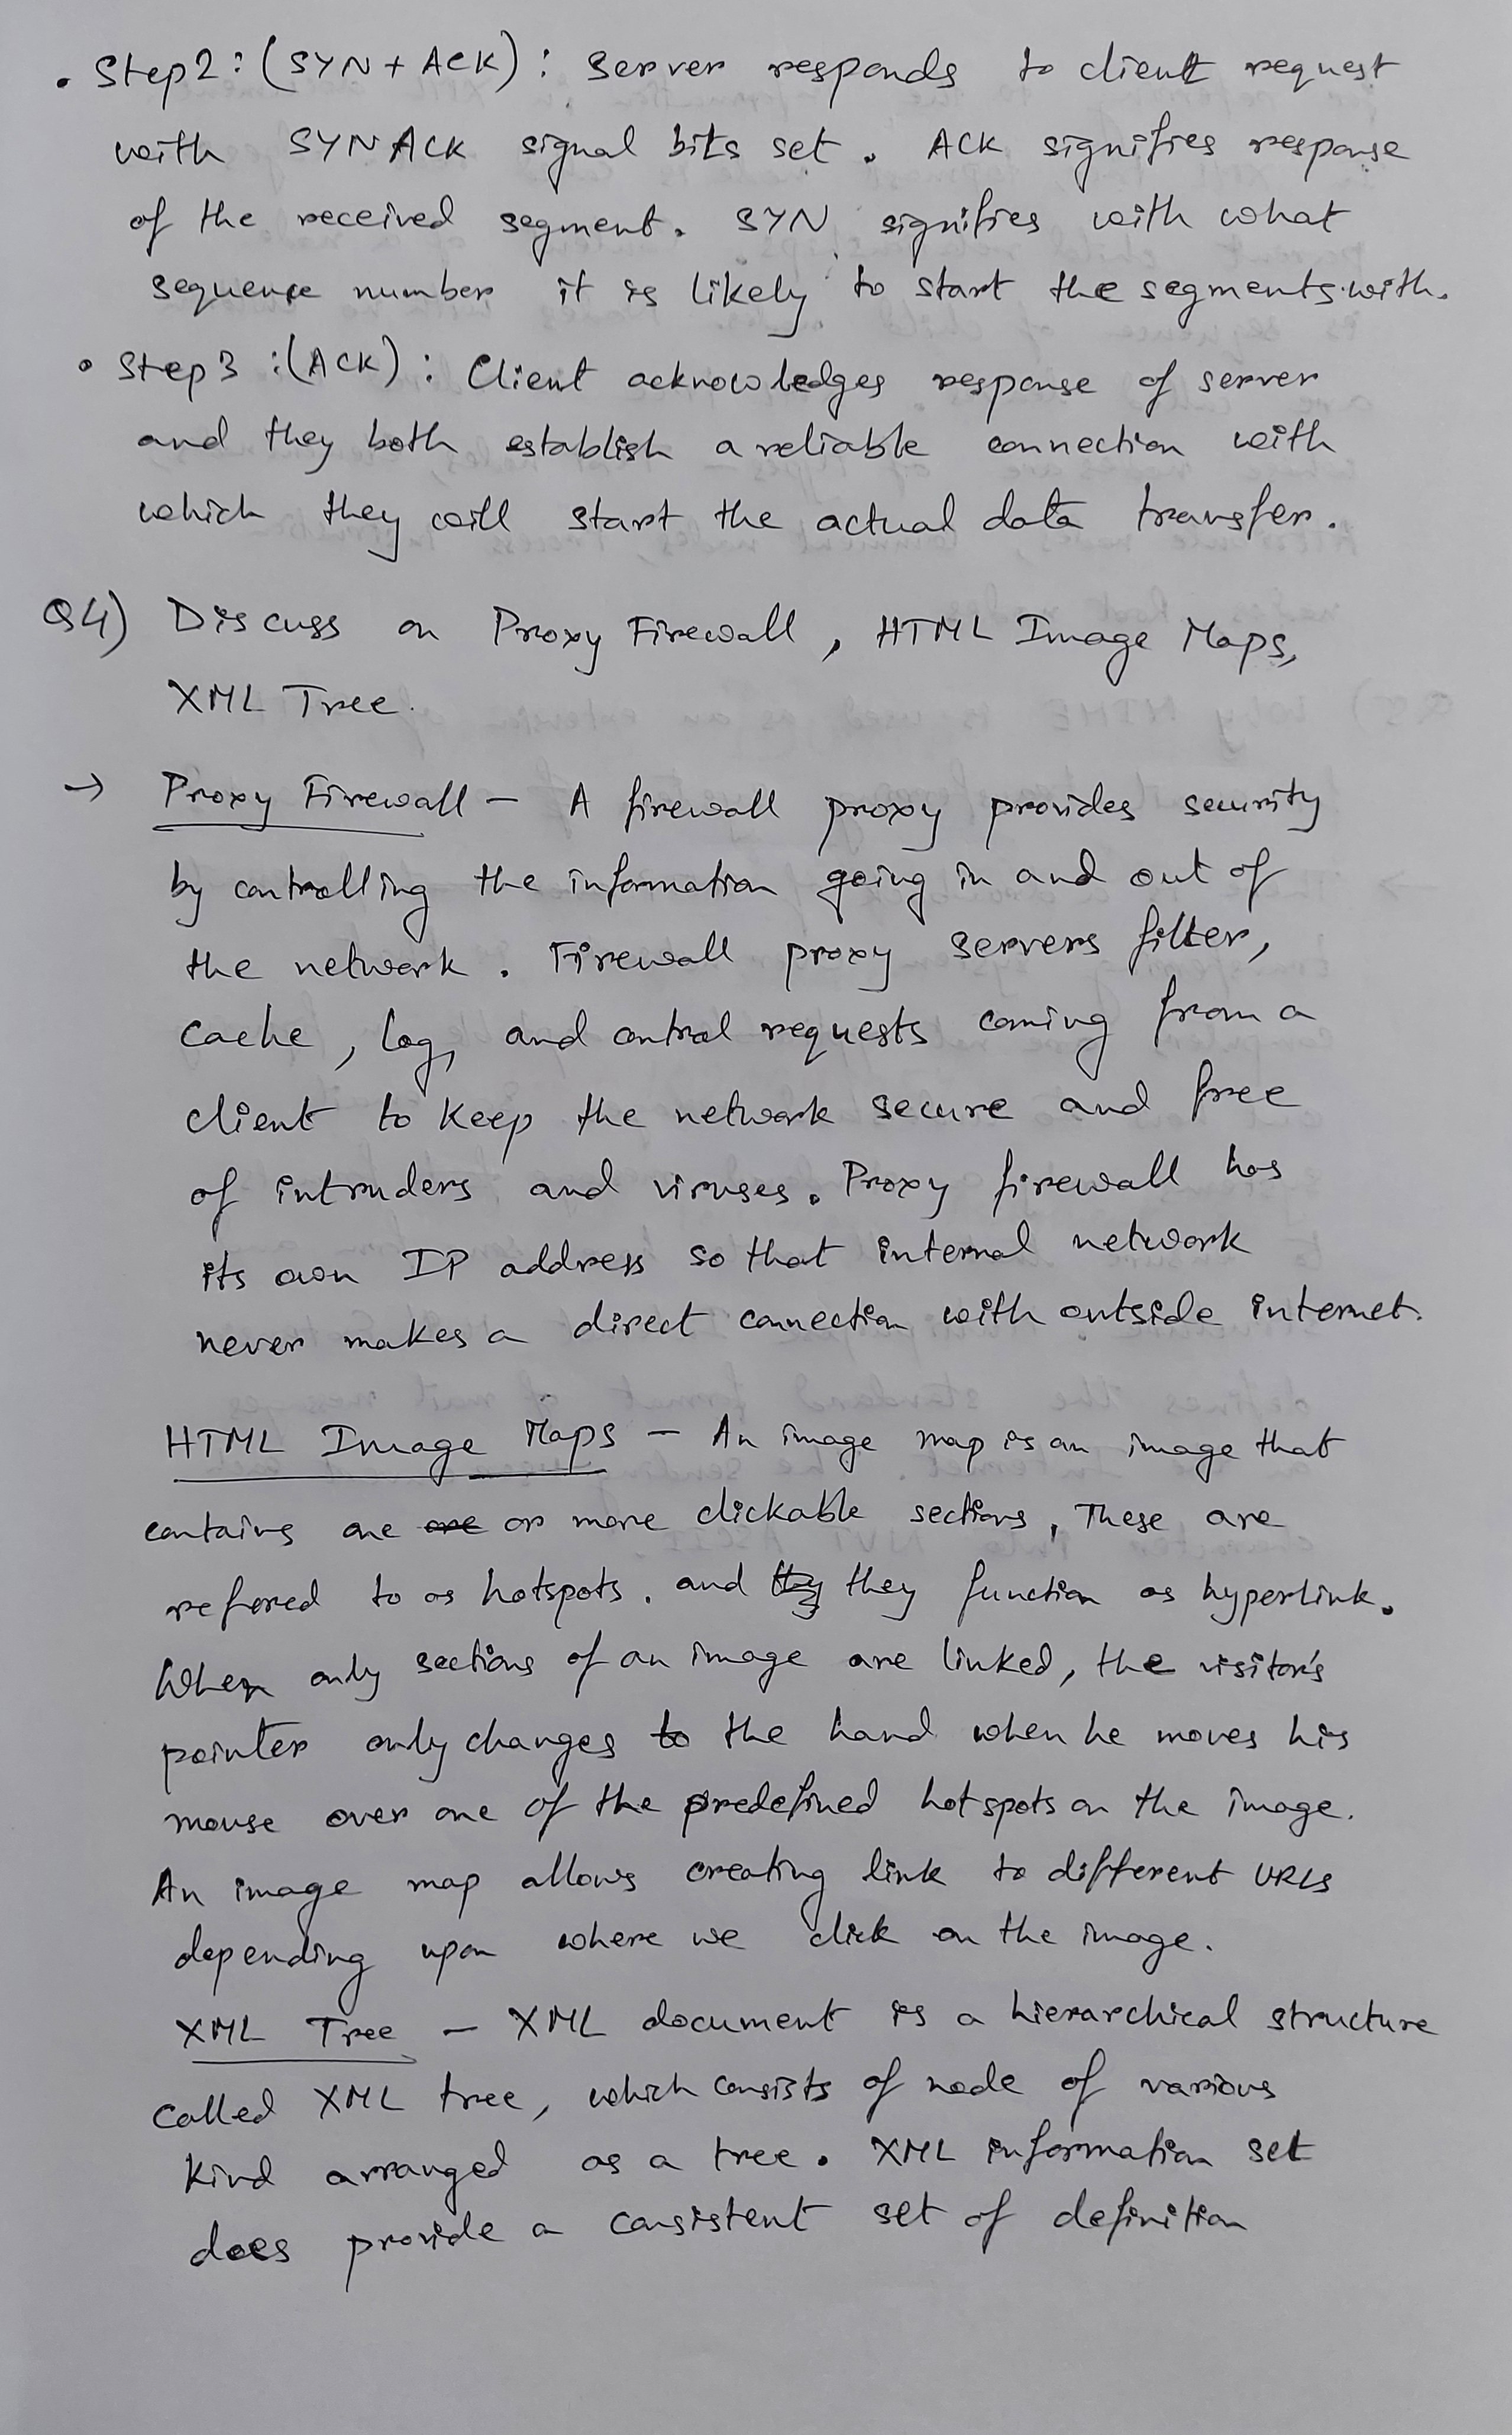 • Step2 : (SYN + ACK) : Server responds to client request
with SYNACK signal bits set. ACK signifies response
of the received segment. SYN signifies with what
sequence number it is likely to start the segments with.
• Step3 : (ACK) : Client acknowledges response of server
and they both establish a reliable connection with
which they will start the actual data transfer.
Q4) Discuss on Proxy Firewall, HTML Image Maps,
XML Tree.
→ Proxy Firewall – A firewall proxy provides security
by controlling the information going in and out of
the network. Firewall proxy servers filter,
cache, log, and control requests coming from a
client to keep the network secure and free
of intruders and viruses. Proxy firewall has
its own IP address so that internal network
never makes a direct connection with outside internet.
HTML Image Maps – An image map is an image that
contains one or more clickable sections, These are
refered to as hotspots. and they function as hyperlink.
When only sections of an image are linked, the visitor's
pointer only changes to the hand when he moves his
mouse over one of the predefined hotspots on the image.
An image map allows creating link to different URLs
depending upon where we click on the image.
XML Tree – XML document is a hierarchical structure
called XML tree, which consists of node of various
kind arranged as a tree. XML information set
does provide a consistent set of definition